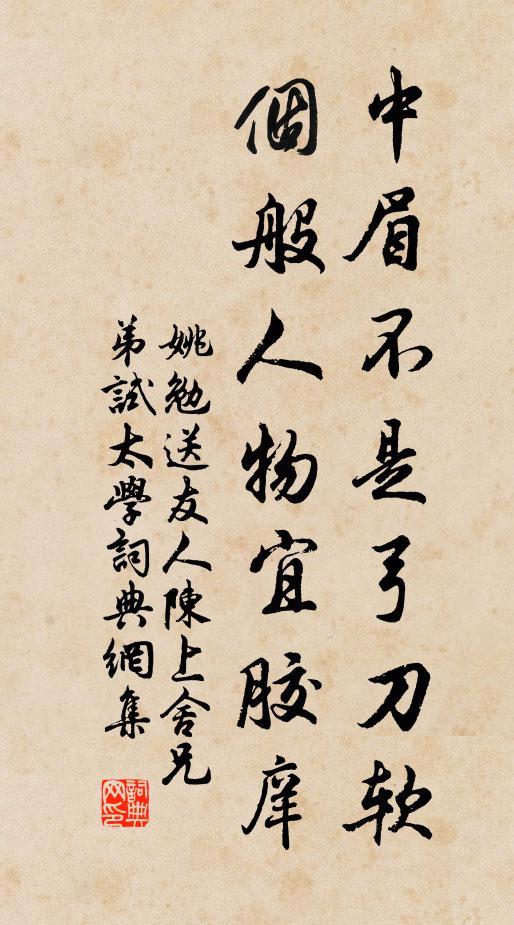 中眉不是弓刀软
個般人物宜膠庠
姚勉送友人陳上舍兄
弟試太學詞典網集
詞典
网印